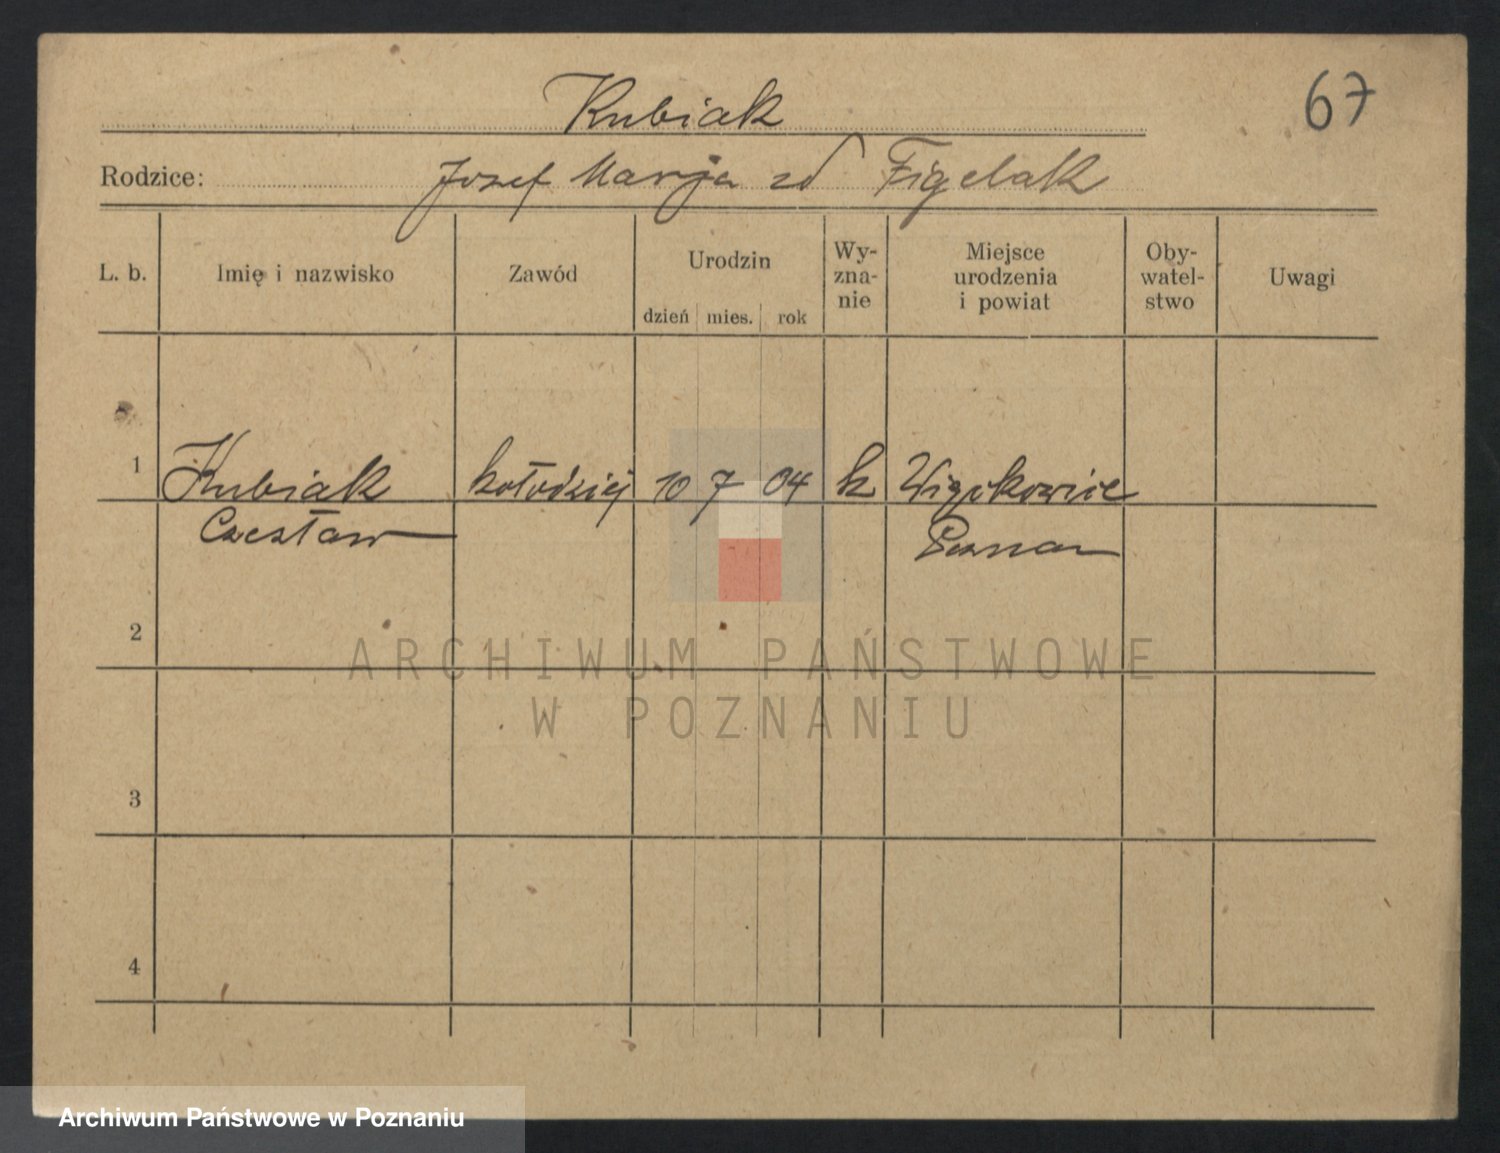 Kubiak
67
Rodzice: Jozef Marja zd Figelak
L. b. Imię i nazwisko Zawód Urodzin dzień mies. rok Wy-zna-nie Miejsce urodzenia i powiat Oby-watel-stwo Uwagi
1 Kubiak kołodziej 10 7 04 k
Czesław Poznan
2
ARCHIWUM PAŃSTWOWE
W POZNANIU
3
4
Archiwum Państwowe w Poznaniu